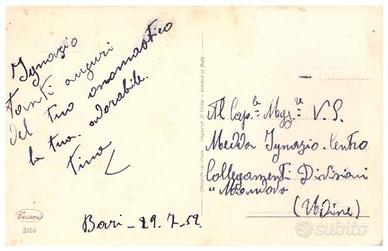 Ignazio
tanti auguri
del tuo onomastico
la tua adorabile.
Tina
Al Cap.le Magg.re V.S.
Medda Ignazio. Centro
Collegamenti Divisioni
"Mantova
(Udine)
Bari - 29.7.52.
Cecami
2010
subito